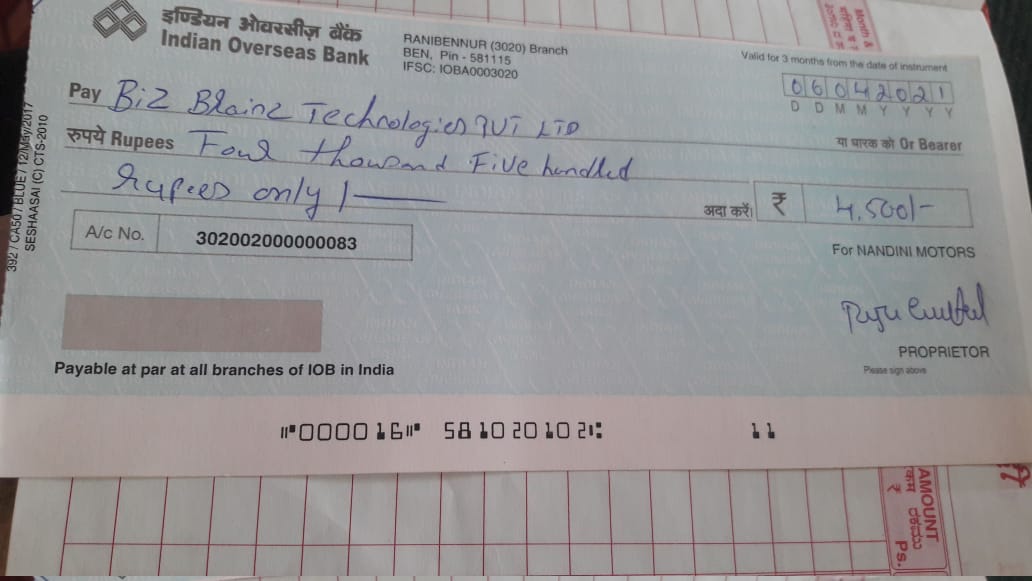 इण्डियन ओवरसीज़ बैंक
Indian Overseas Bank
RANIBENNUR (3020) Branch
BEN, Pin - 581115
IFSC: IOBA0003020
Valid for 3 months from the date of instrument
06042021
D D M M Y Y Y Y
Pay Biz Brainz Technologies PVT LTD
या धारक को Or Bearer
रुपये Rupees Four thousand Five hundred
rupees only /-
अदा करें। ₹ 4,500/-
A/c No. 302002000000083
For NANDINI MOTORS
PROPRIETOR
Please sign above
Payable at par at all branches of IOB in India
⑈000016⑈ 581020102⑆ 11
392 / CA50 / BLUE / 12/May/2017
SESHAASAI (C) CTS-2010
Month &
AMOUNT
₹
Ps.